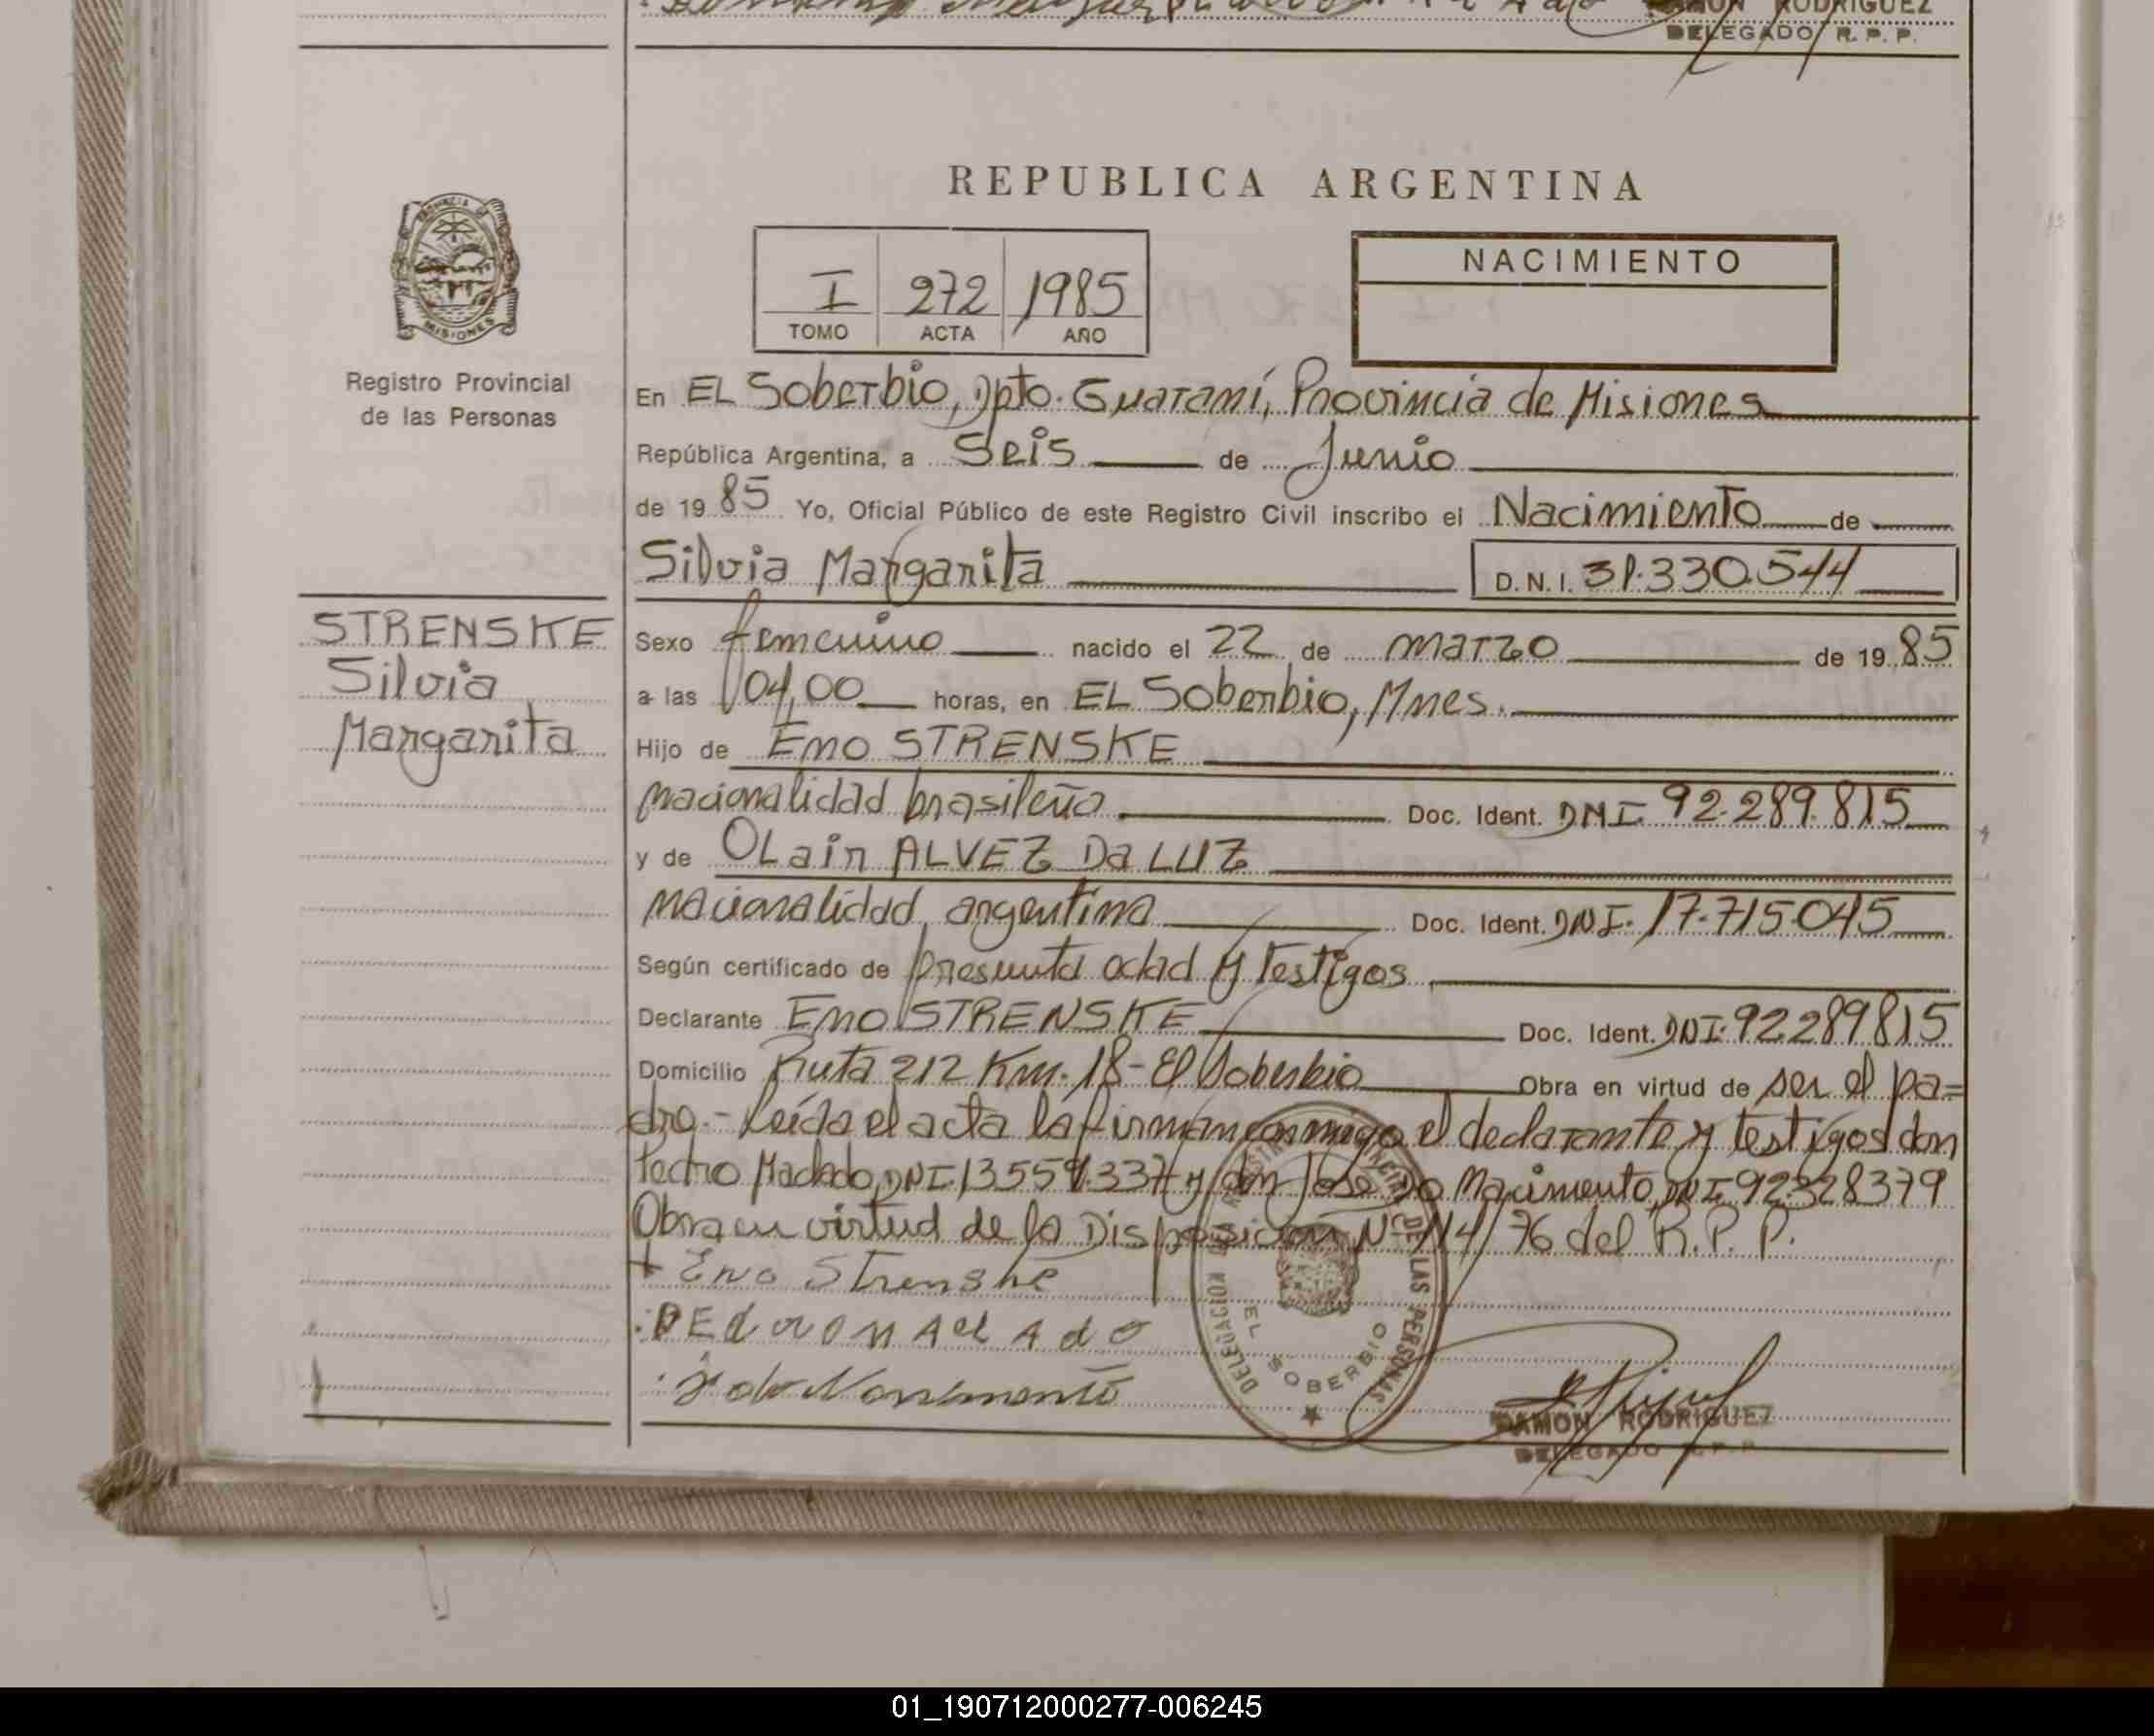 RAMON RODRIGUEZ
DELEGADO R. P. P.
REPUBLICA ARGENTINA
I 272 1985
TOMO ACTA AÑO
NACIMIENTO
PROVINCIA DE
MISIONES
Registro Provincial
de las Personas
En EL Soberbio, Dpto. Guaraní, Provincia de Misiones
República Argentina, a Seis de Junio
de 1985 Yo, Oficial Público de este Registro Civil inscribo el Nacimiento de
Silvia Margarita D.N.I. 31.330.544
STRENSKE
Silvia
Margarita
Sexo femenino nacido el 22 de marzo de 1985
a las 04,00 horas, en EL Soberbio, Mnes.
Hijo de Eno STRENSKE
nacionalidad brasileño Doc. Ident. DNI. 92.289.815
y de OLair ALVEZ Da LUZ
nacionalidad argentina Doc. Ident. DNI. 17.715.045
Según certificado de presunta edad y testigos
Declarante Eno STRENSKE Doc. Ident. DNI. 92289815
Domicilio Ruta 212 Km. 18 - El Soberbio Obra en virtud de ser el pa=
dre.- Leída el acta la firman conmigo el declarante y testigos don
Pedro Machado, DNI. y don José Do Nacimento, DNI 92328379
Obra en virtud de la Disposición Nº 114/76 del R. P. P.
+ Eno Strenske
DELEGACION EL SOBERBIO
DE LAS PERSONAS
RAMON RODRIGUEZ
DELEGADO R. P. P.
01_190712000277-006245